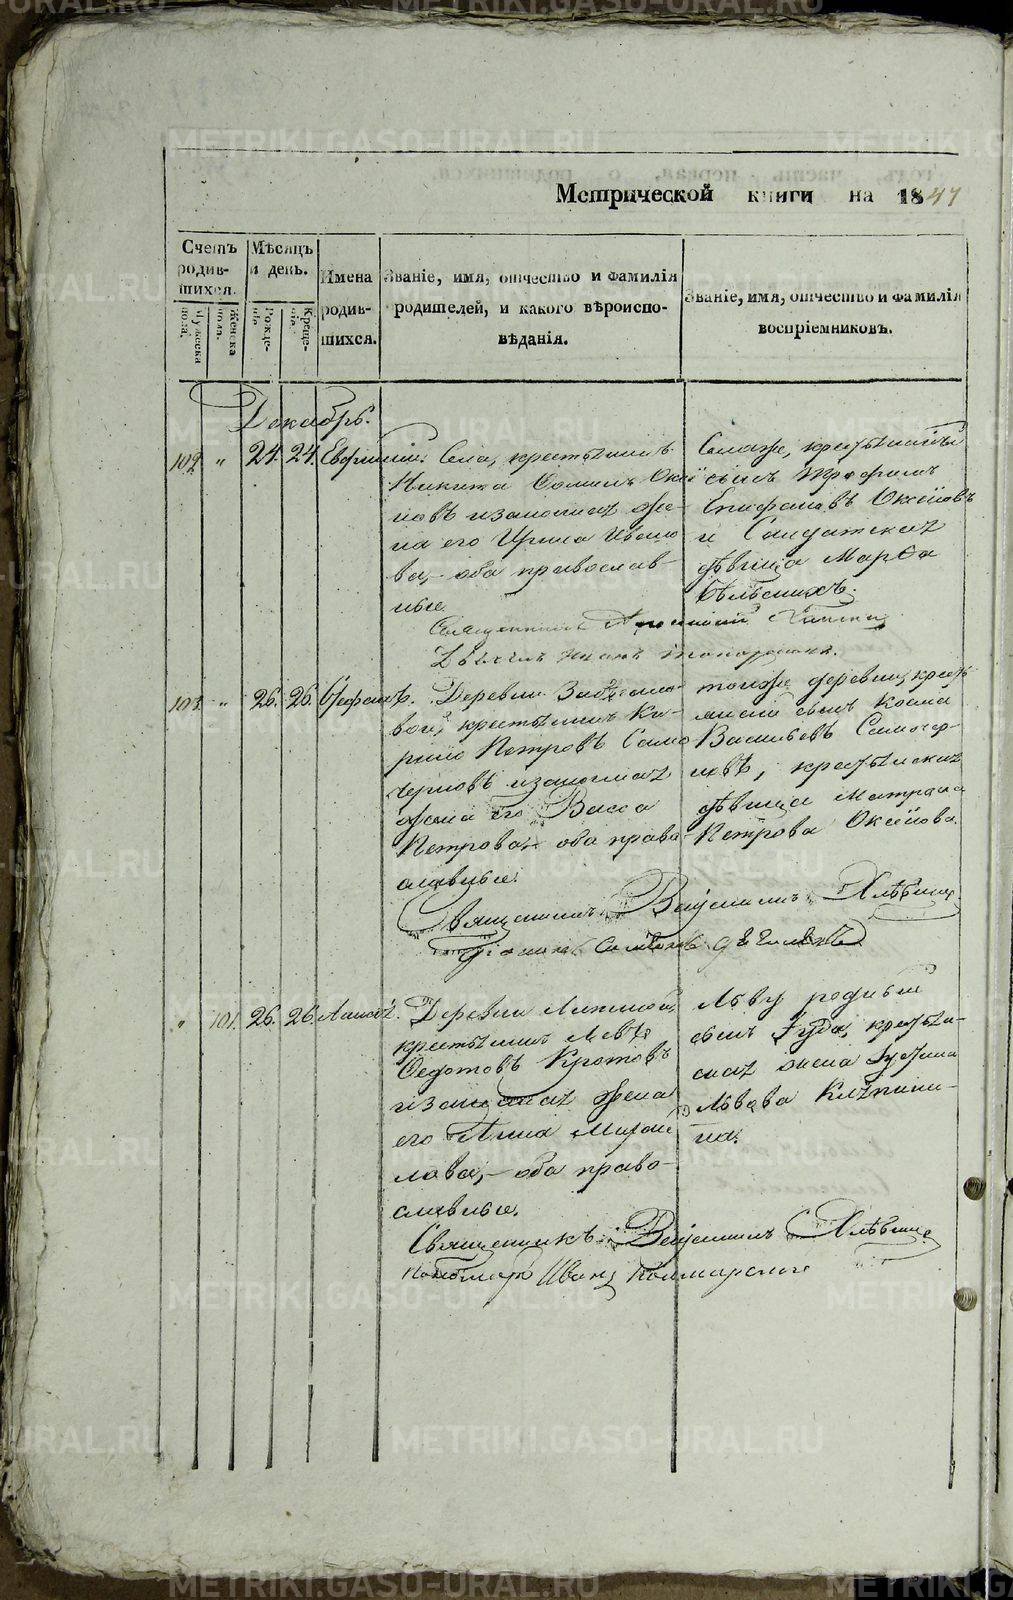 Метрической книги на 1847
Счетъ родившихся.
Мужеска пола.
Женска пола.
Мѣсяцъ и день.
Рожденiя.
Крещенiя.
Имена родившихся.
Званіе, имя, отчество и фамилія
родителей, и какого вѣроиспо-
вѣданія.
Званіе, имя, отчество и фамилія
воспріемниковъ.
Декабрь.
102 " 24. 24. Евфимій.
Села, крестьянинъ
Никита Фоминъ Оксі
новъ и законная же-
на его Ирина Ивано
ва, оба православ-
ные.
Тогоже, крестьянскій
сынъ Трофимъ
Епифановъ Оксёновъ
и Солдатская
дѣвица Марѳа
Священникъ
103. " 26. 26. Стефанъ.
Деревни
вой, крестьянинъ Ки-
рило Петровъ Само
черновъ и законная
жена его Васса
Петрова, оба право-
славные.
тояже деревни, крест
янскій сынъ Косма
Васильевъ Самочер-
новъ, крестьянская
дѣвица Матрона
Петрова Оксёнова.
Священникъ Веніаминъ Хлѣбинъ
" 101. 26. 26.
Деревни Липиной,
крестьянинъ Левъ
Ѳедотовъ Кротовъ
и законная жена
его Анна Михаи
лова, оба право-
славные.
Льву родный
сынъ Іуда, крестья-
ская жена Іустина
Львова
на.
Священникъ Веніаминъ Хлѣбинъ
Пономарь Иванъ
METRIKI.GASO-URAL.RU